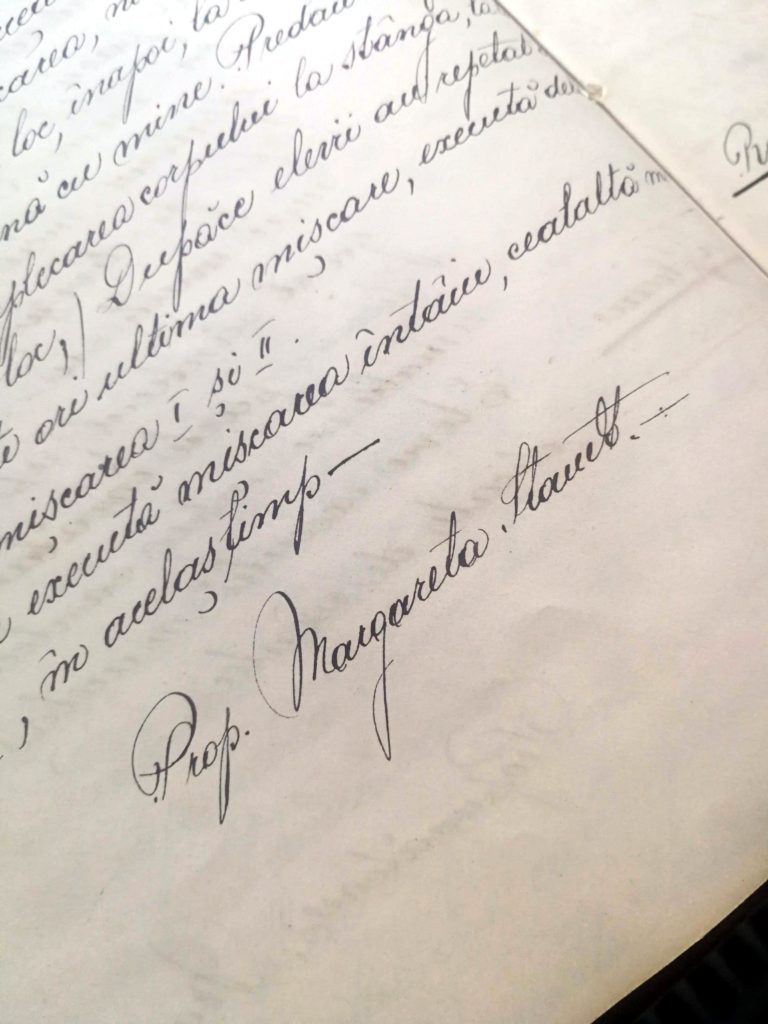 loc, înapoi, la
cu mine. Predau
plecarea corpului la stânga, la
loc,) Dupăce elevii au repetat
ori ultima mișcare, execută
mișcarea I și II.
execută mișcarea întâiu, cealaltă
, în acelaș timp —
Prop. Margareta